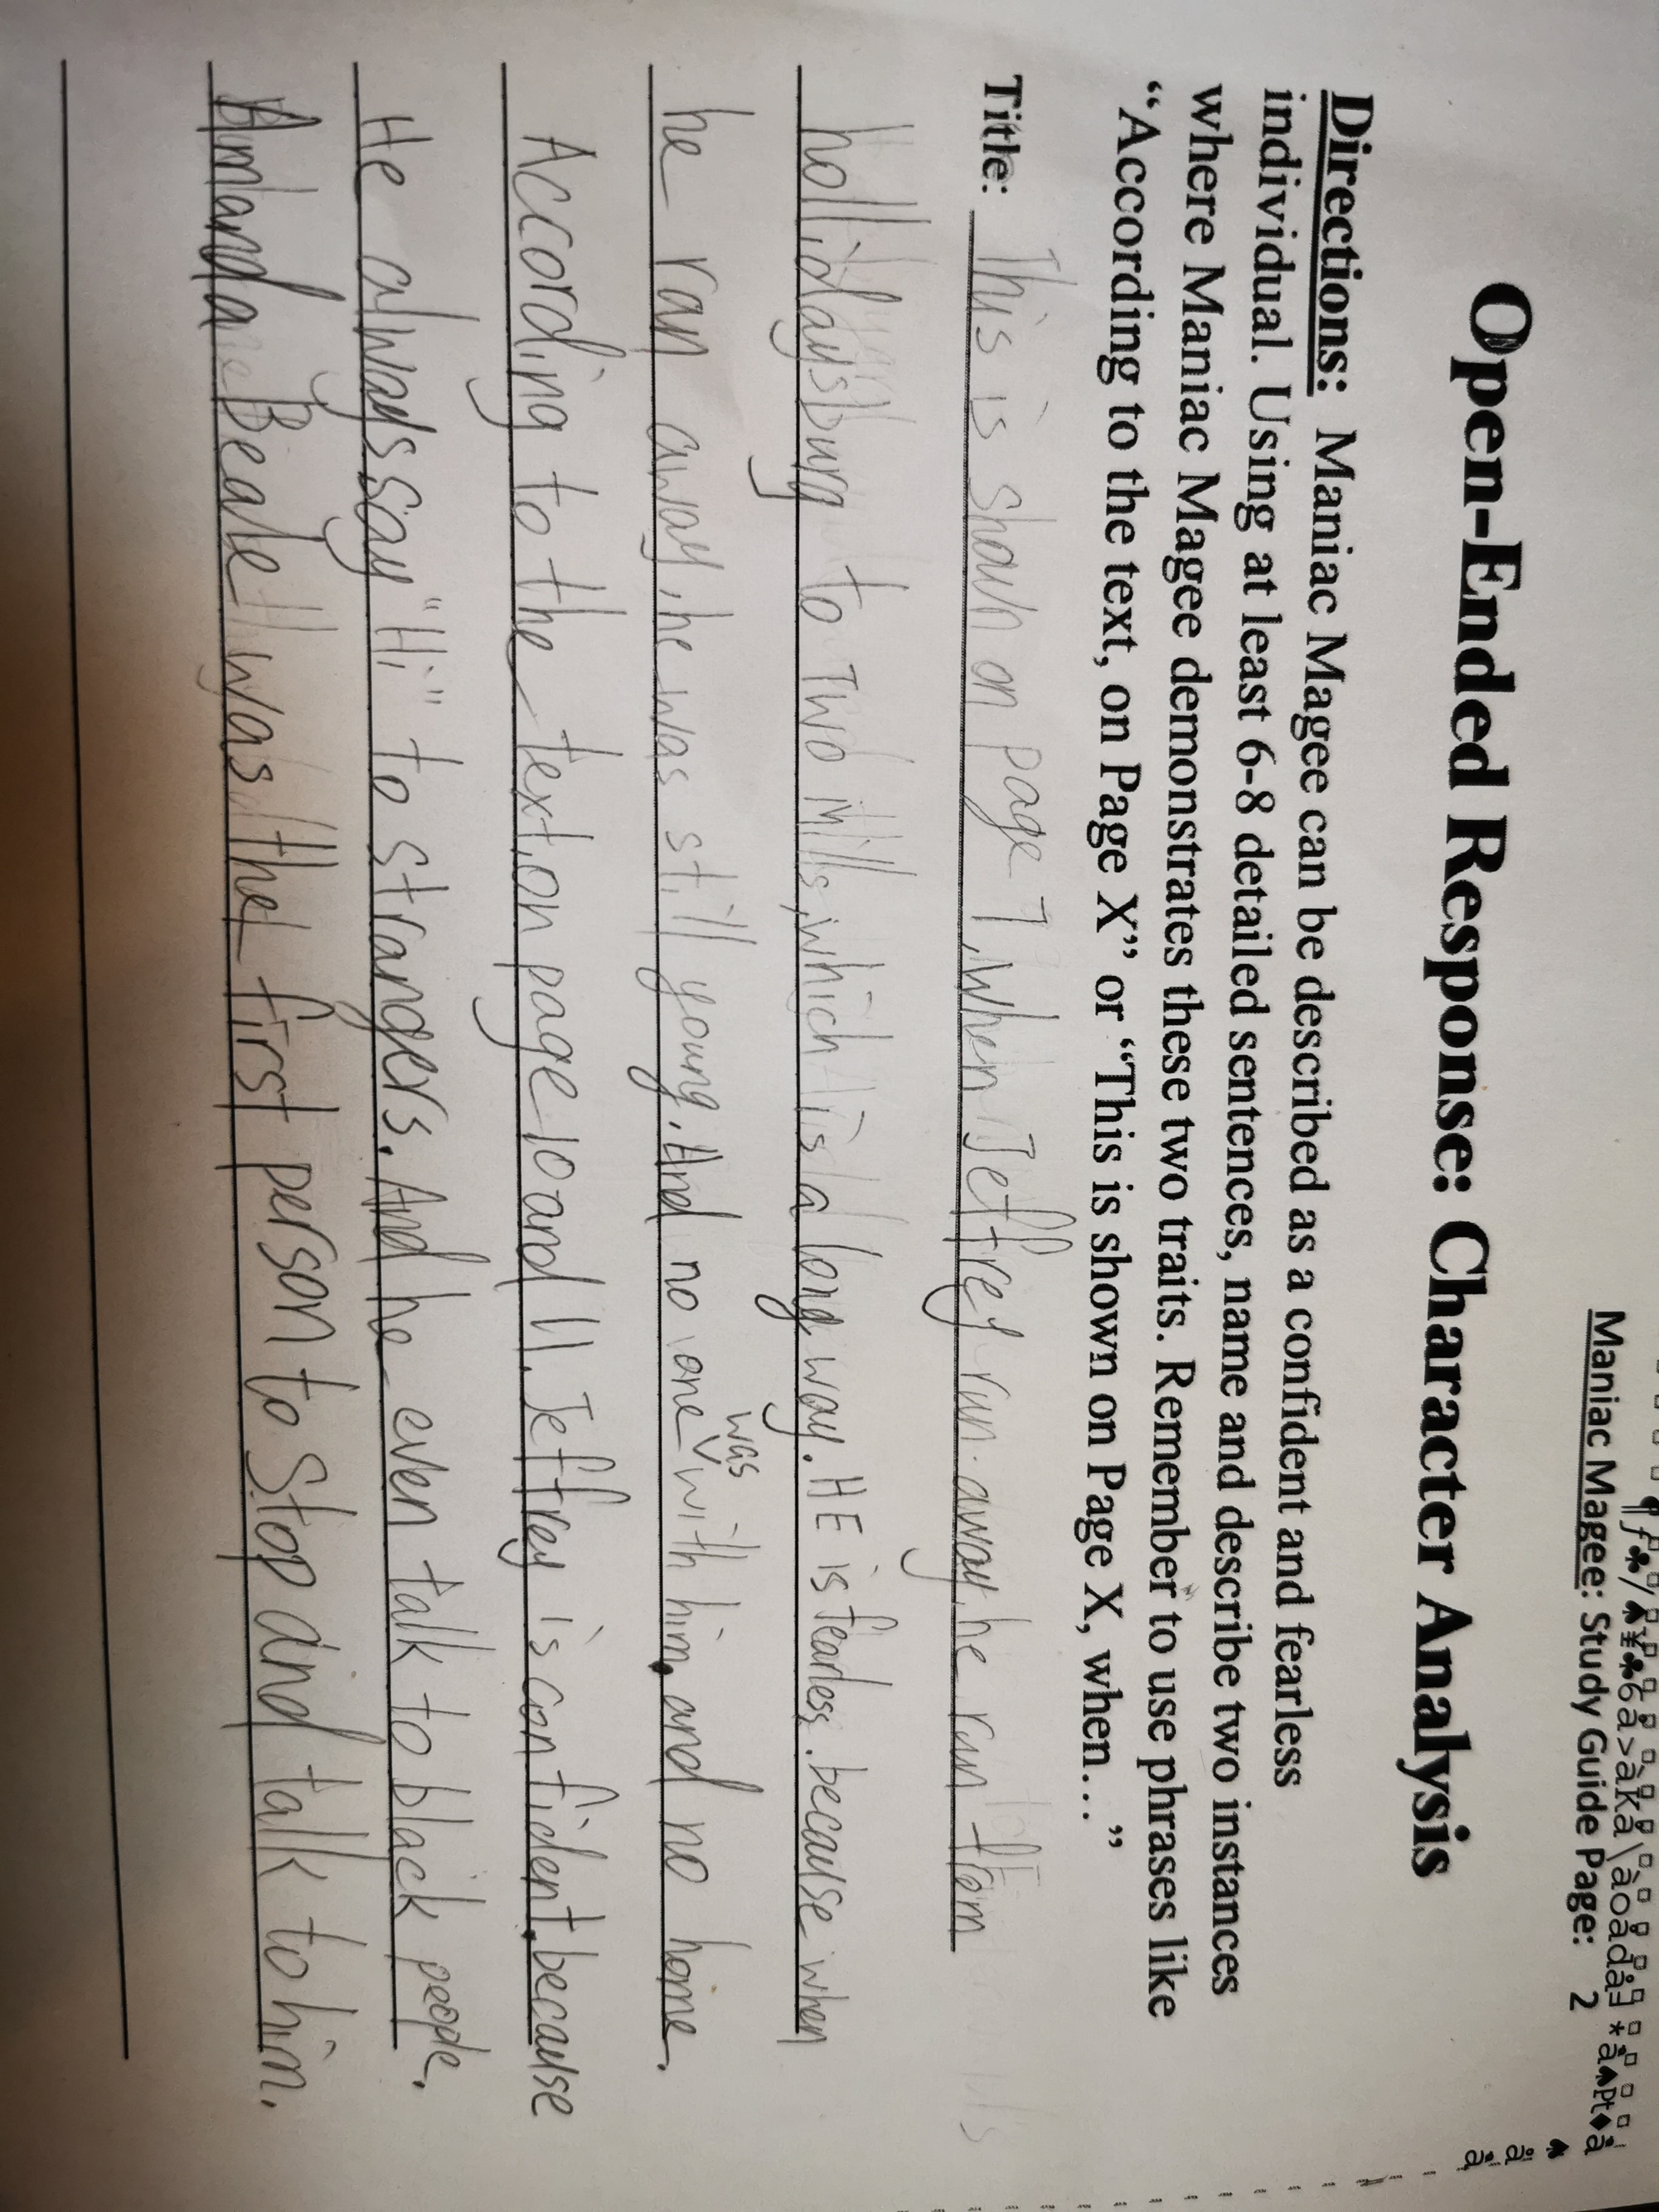 Maniac Magee: Study Guide Page: 2
Open-Ended Response: Character Analysis
Directions: Maniac Magee can be described as a confident and fearless
individual. Using at least 6-8 detailed sentences, name and describe two instances
where Maniac Magee demonstrates these two traits. Remember to use phrases like
“According to the text, on Page X” or “This is shown on Page X, when…”
Title: This is shown on page 7, when Jeffrey run away, he run from
hollidaysburg to Two Mills, which is a long way. HE is fearless. because when
he ran away, he was still young. And no one was with him, and no home.
According to the text, on page 10 and 11. Jeffrey is confident. because
He always say "Hi" to strangers. And he even talk to black people.
Amanda Beale was the first person to stop and talk to him.